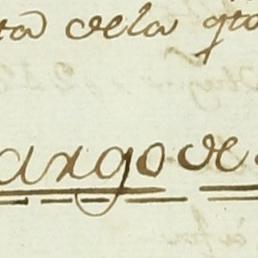 ta de la qta
argo de